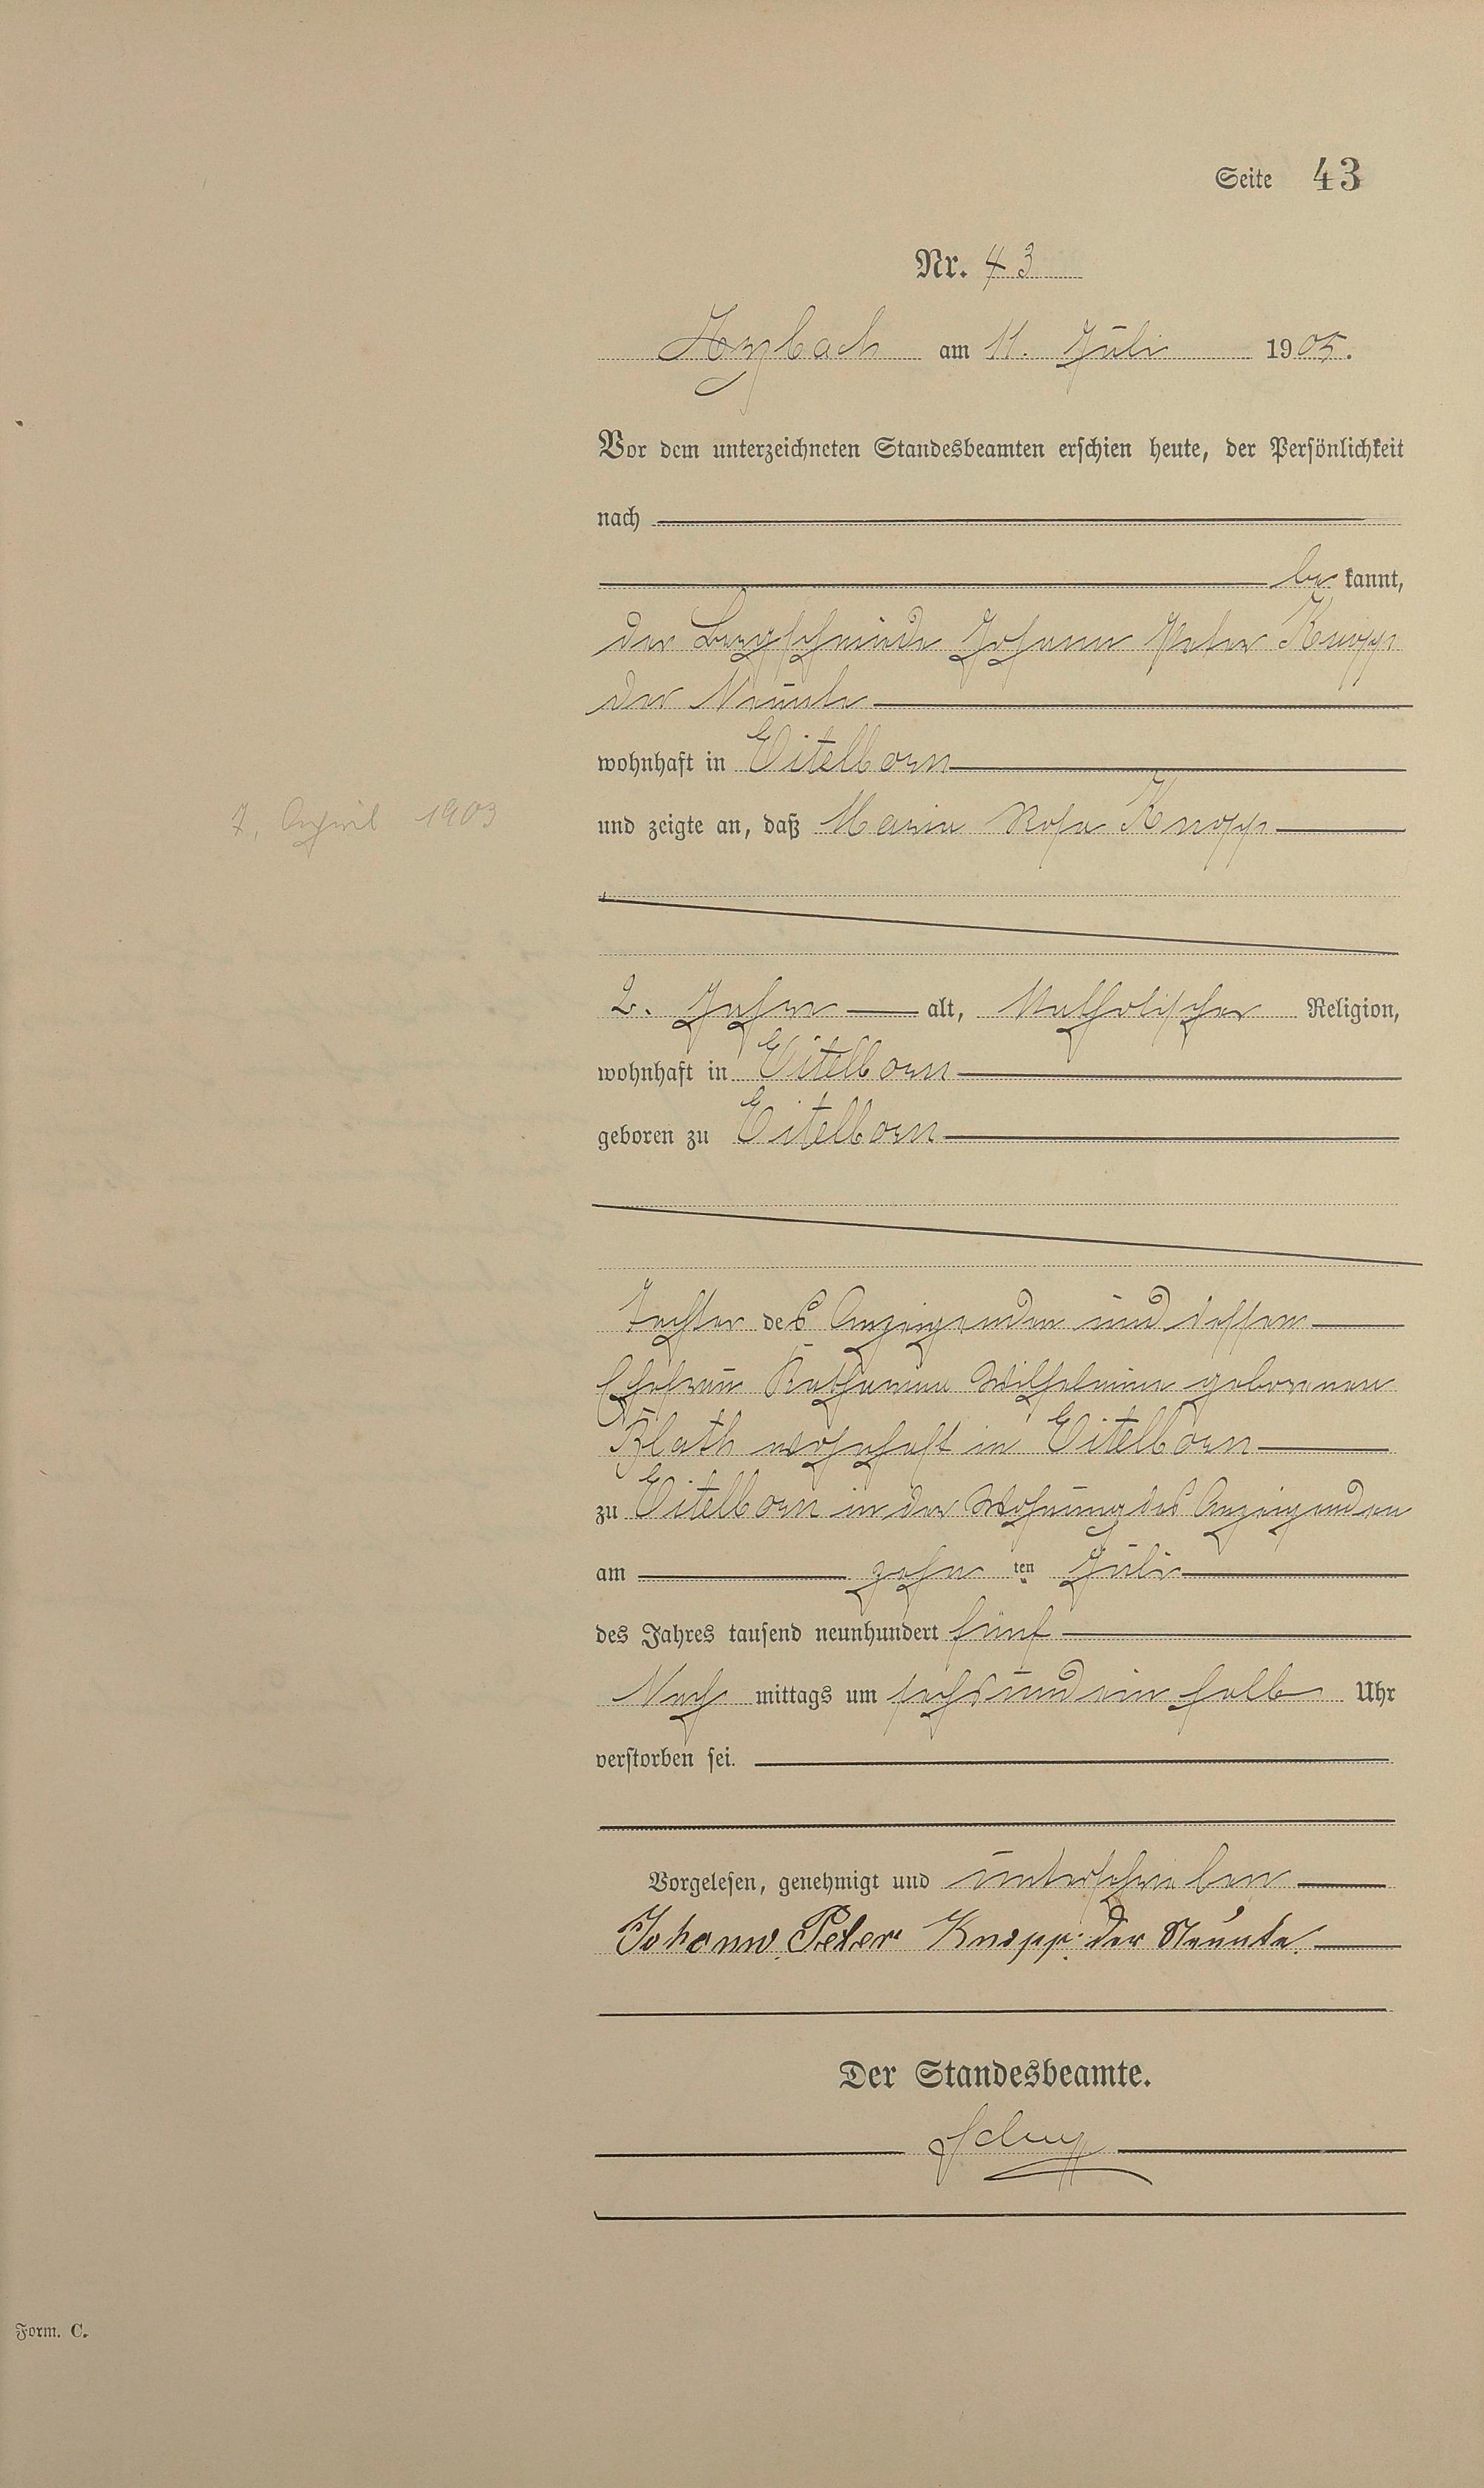 Seite 43
Nr. 43
Arzbach am 11. Juli 1905.
Vor dem unterzeichneten Standesbeamten erschien heute, der Persönlichkeit
nach
be kannt,
der Bergschmiede Johann Peter Knopp
der Neunte
wohnhaft in Eitelborn
7. April 1903
und zeigte an, daß Maria Rosa Knopp
2. Jahre alt, katholischer Religion,
wohnhaft in Eitelborn
geboren zu Eitelborn
Tochter des Anzeigenden und dessen
Ehefrau Katharina Wilhelmine geborenen
Klath wohnhaft in Eitelborn
zu Eitelborn in der Wohnung des Anzeigenden
am zehn ten Juli
des Jahres tausend neunhundert fünf
Nach mittags um sechs und ein halb Uhr
verstorben sei.
Vorgelesen, genehmigt und unterschrieben
Johann Peter Knopp der Neunte
Der Standesbeamte.
Form. C.